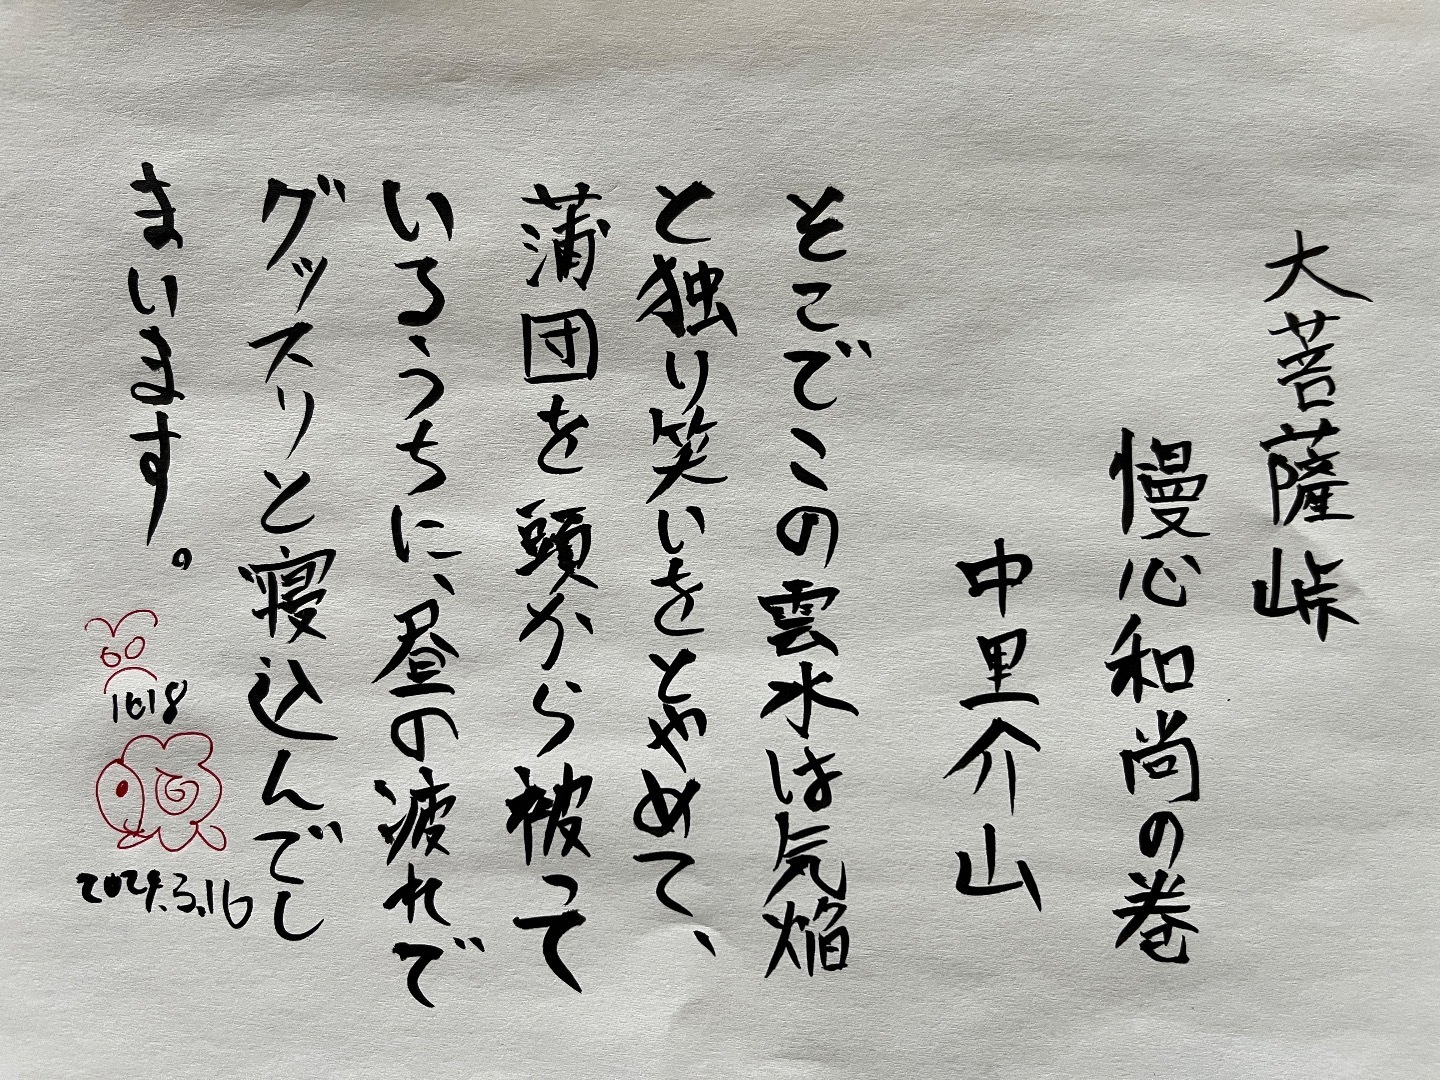 大菩薩峠
慢心和尚の巻
中里介山
そこでこの雲水は気焔
と独り笑いをとやめて、
蒲団を頭から被って
いるうちに、昼の疲れで
グッスリと寝込んでし
まいます。
1018
2024.3.16